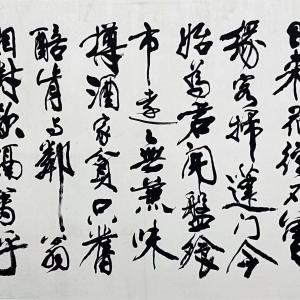 日來花徑不曾
緣客掃蓬門今
始為君開盤飧
市遠無兼味
樽酒家貧只舊
醅肯与鄰翁
相對飲隔籬呼